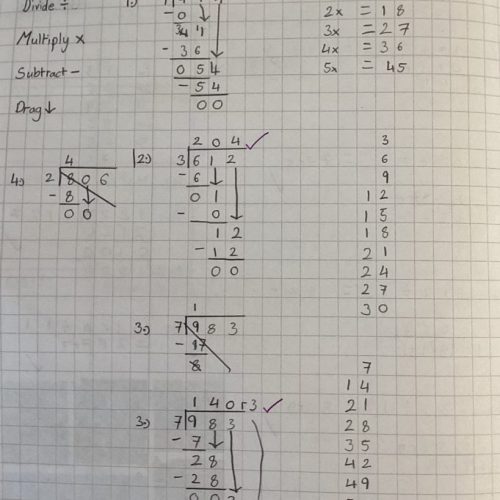 Divide ÷
Multiply x
Subtract -
Drag ↓
1.)
- 0
34 1
- 3 6
0 5 4
- 5 4
0 0
2x = 1 8
3x = 2 7
4x = 3 6
5x = 4 5
4
4.) 2 8 0 6
- 8
0 0
2 0 4 ✓
2.) 3 6 1 2
- 6
0 1
- 0
1 2
- 1 2
0 0
3
6
9
1 2
1 5
1 8
2 1
2 4
2 7
3 0
1
3.) 7 9 8 3
- 17
8
1 4 0 r 3 ✓
3.) 7 9 8 3
- 7
2 8
- 2 8
0 0 3
7
1 4
2 1
2 8
3 5
4 2
4 9